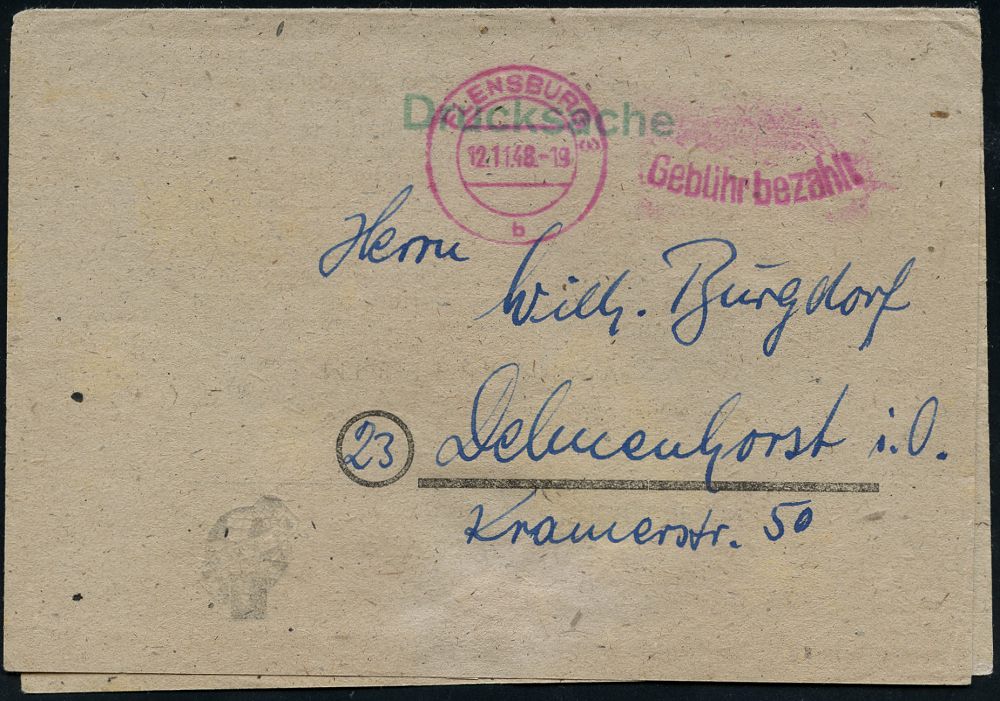 Drucksache
FLENSBURG
12.11.48.-19
b
Gebühr bezahlt
Herrn
Wilh. Burgdorf
23 Delmenhorst i.O.
Kramerstr. 50